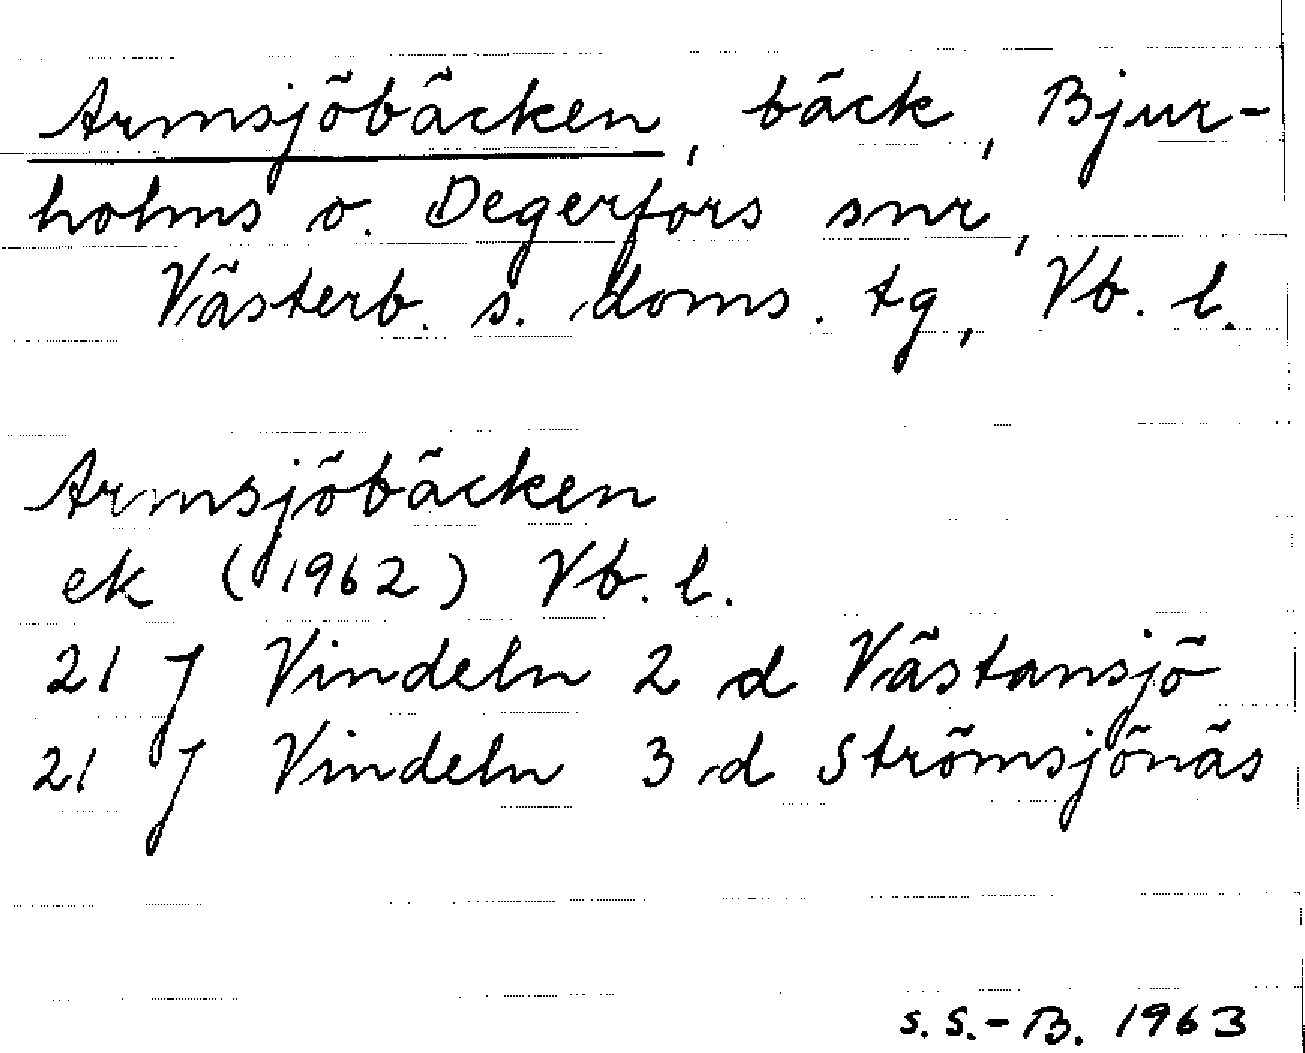 Armsjöbäcken, bäck, Bjur-
holms o. Degerfors snr,
Västerb. s. doms. tg, Vb. l.
Armsjöbäcken
ek (1962) Vb. l.
21 J Vindeln 2 d Västansjö
21 J Vindeln 3 d Strömsjönäs
S. S.-B. 1963